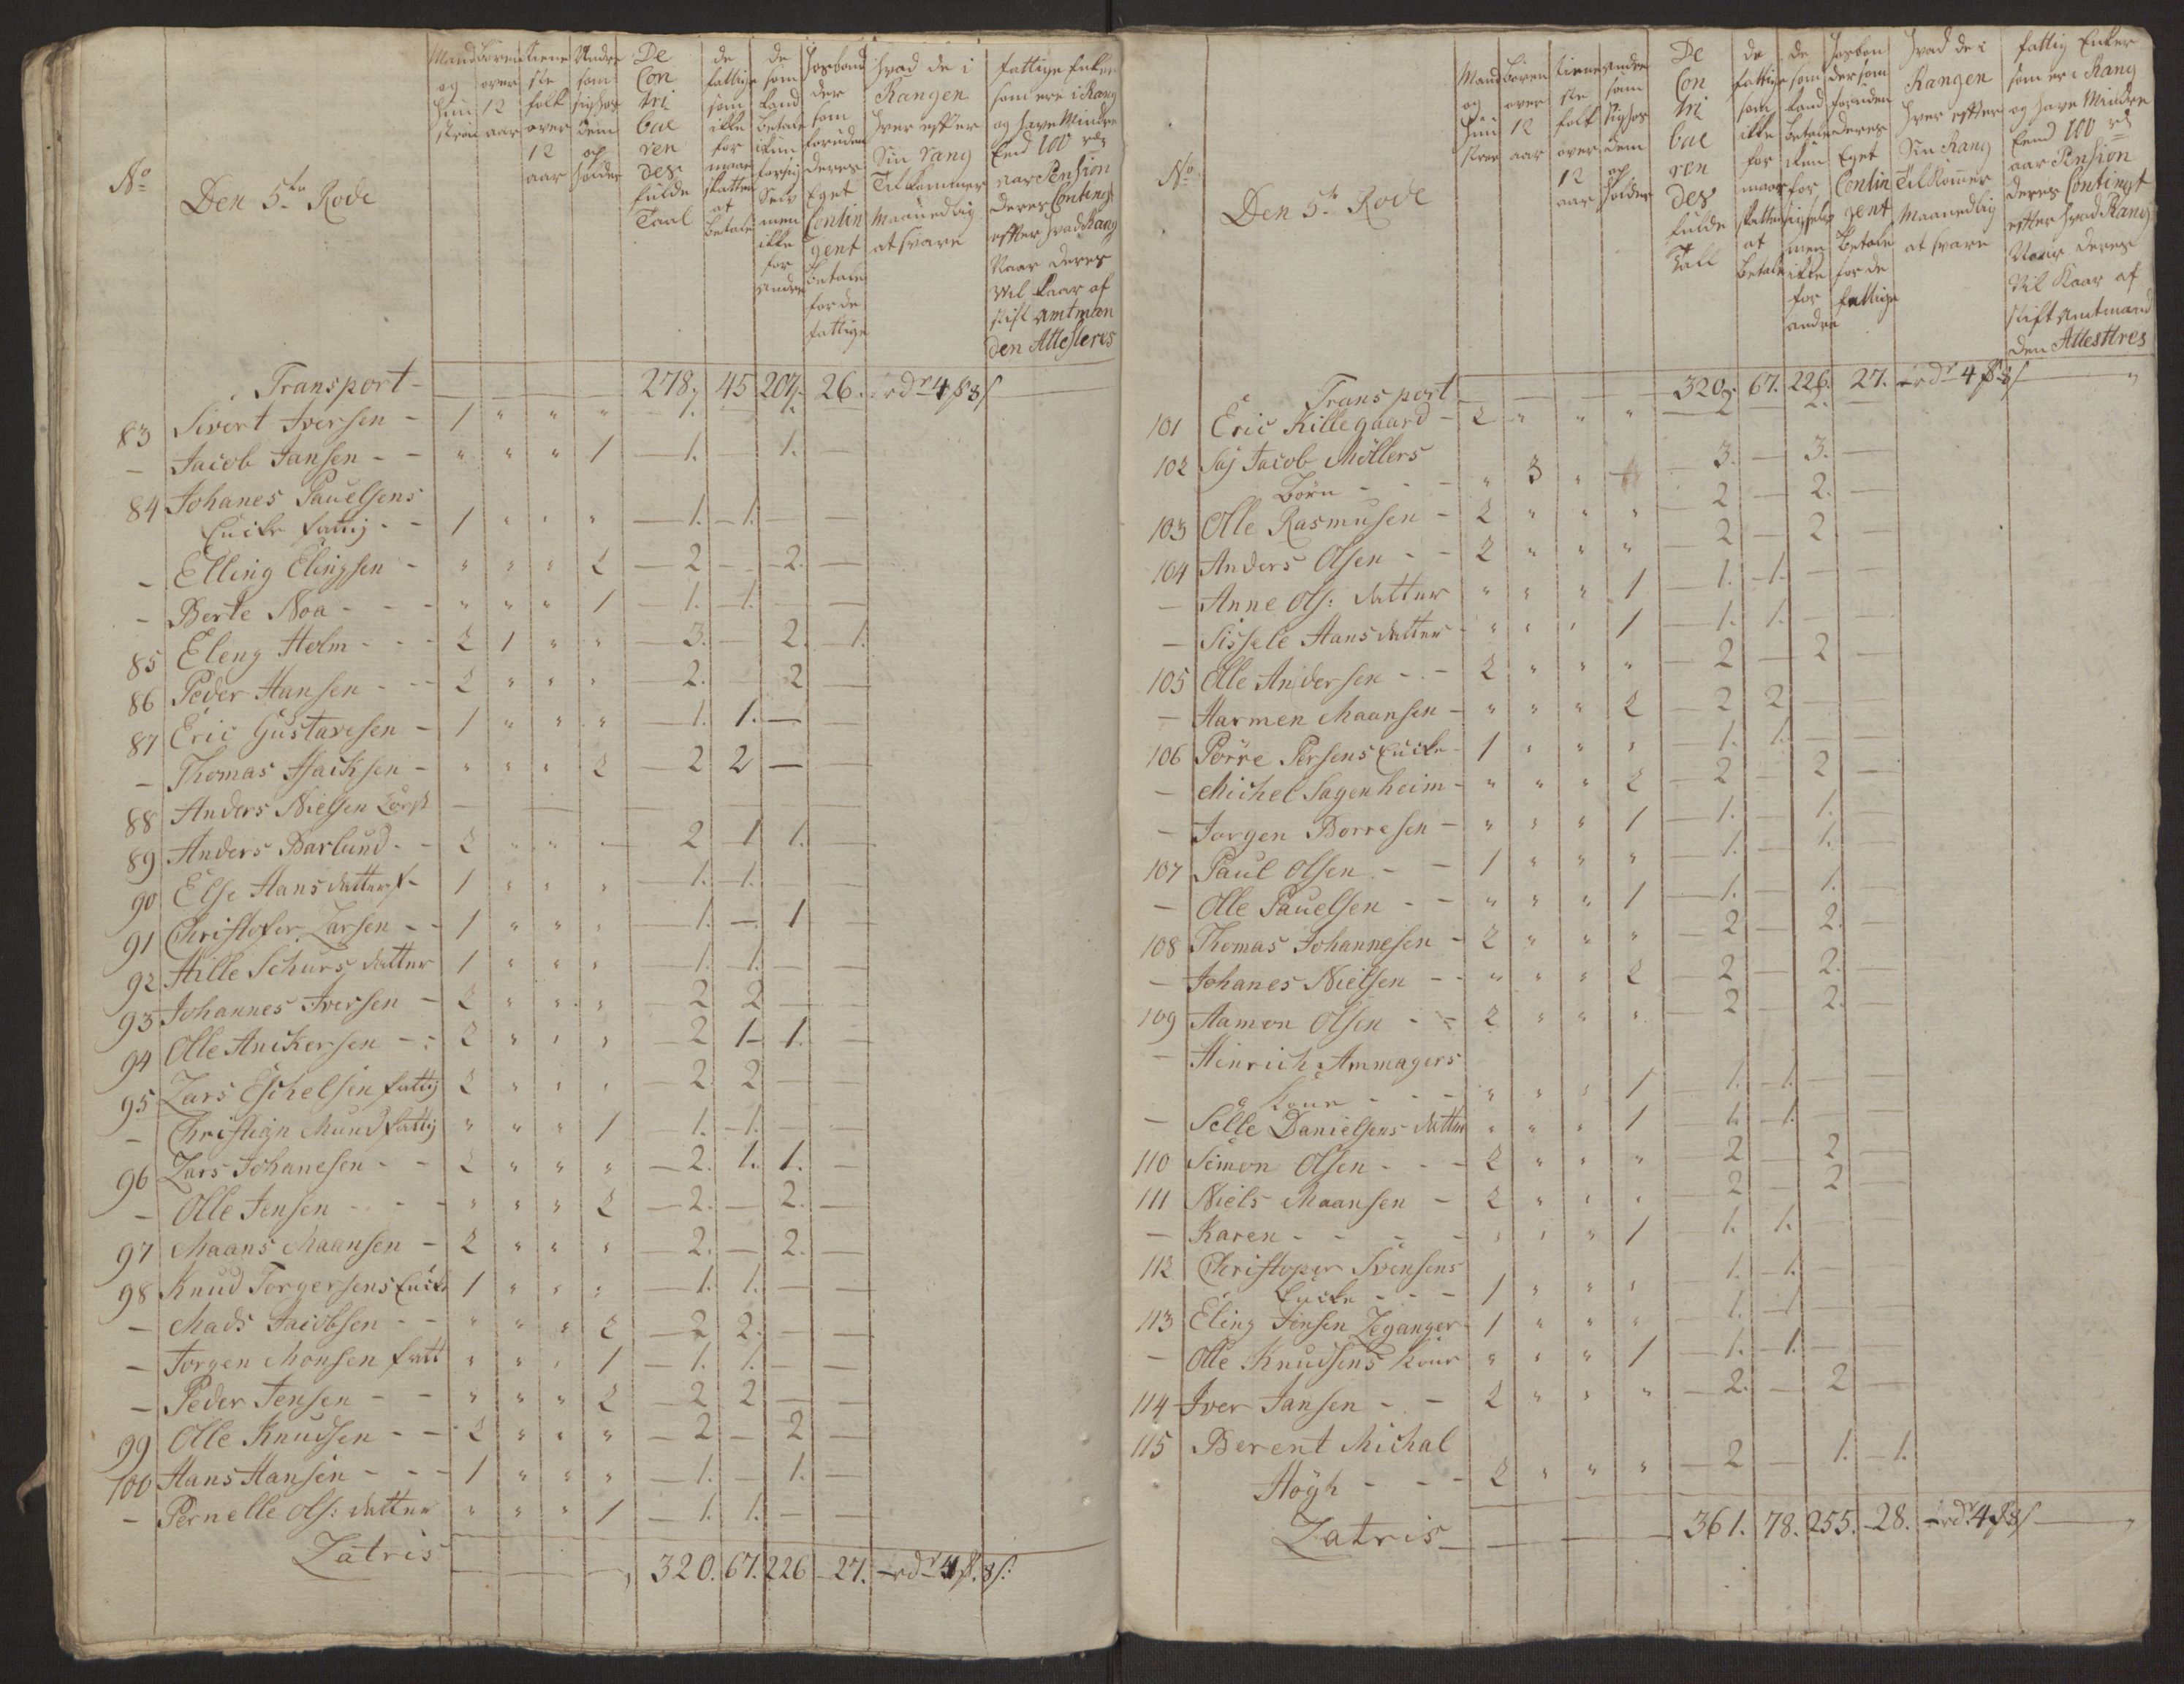 No
Den 5te Rode
Mand og Hustroe
börn over 12 aar
tieneste folk over 12 aar
Andre som sig hos dem op holder
De Contribuerendes fulde Taal
de fattige som ikke for maar skatten at betale
de som kand betale ikun for sig selv men ikke for andre
Hosbond der som foruden deres Eget Contingent betale for de fattige
Hvad de i Rangen hver efter Sin rang Tilkommer Maanedlig at svare
fattige Enker som ere i Rang og have Mindre End 100 rd aar Pension deres Contingt efter hvad Rang Naar deres vil kaar af stift amtmanden Attesteres
Transport - 278. 45 207. 26. rdr 4 ß 8 s
83 Sivert Iversen - 1 " " " 1. 1.
- Jacob Jansen - - " " " 1 - 1. - 1. -
84 Johanes Pauelsens
Encke fattig - - 1 " " " - 1. - 1. - -
- Elling Elingsen - " " " 2 - 2 - - 2. -
- Berte Noa - - - " " " 1 - 1. - 1. - -
85 Eleng Holm - - - 2 1 " " - 3. - 2. - 1.
86 Peder Hansen - - - 2 " " " - 2. - 2 -
87 Eric Gustavesen - 1 " " " - 1. 1. - -
- Thomas Isacksen - " " " 2 - 2 2 - -
88 Anders Nielsen - - - -
89 Anders Barlund - - 2 " " - 2 1 1. -
90 Else Hans datter f - 1 " " " - 1. - 1. -
91 Christofer Larsen - - 1 " " " - 1. - 1 -
92 Hille Schurs datter 1 " " " 1. 1. - -
93 Johannes Iversen - 2 " " " - 2 2 - -
94 Olle Anckersen - - 2 " " " - 2 1 - 1. -
95 Lars Eschelsen fattig 2 " " " - 2 2 - -
- Christian Mund fattig " " " 1 - 1. - 1. - -
96 Lars Johanesen - - 2 " " " - 2. 1. 1. -
- Olle Jensen - - - " " " 2 - 2. - 2. -
97 Maans Maansen - 2 " " " - 2. - 2. -
98 Knud Torgersens Encke 1 " " " - 1. 1. - -
- Mads Jacobsen - - " " " 2 - 2 2. - -
- Torgen Monsen fatt " " " 1 - 1. 1. - -
- Peder Jensen - - " " " 2 - 2 2 - -
99 Olle Knudsen - - 2 " " " - 2 - 2 -
100 Hans Hansen - - - 1 " " " - 1. - 1. -
- Pernelle Ols: datter " " " 1 - 1. 1. - -
Latris - - - 320. 67. 226 - 27. - rdr 4 ß. 8 s:
No
Den 5te Rode
Mand og Hustroe
Börn over 12 aar
tieneste folk over 12 aar
Andre som sig hos dem op holder
De Contribuerendes fulde Tall
de fattige som ikke for maar skatten at betale
de som kand betale ikun for sig selv men ikke for andre
Hosbonder som foruden deres Eget Contingent betale for de fattige
Hvad de i Rangen hver efter Sin Rang Tilkomer Maanedlig at svare
fattig Enker som er i Rang og have Mindre Eend 100 rd aar Pension deres Contingt efter hvad Rang Naar deres Vil Kaar af stift amtmanden Attesttres
Transport - 320. 67. 226. 27. - rdr 4 ß 8 s "
101 Eric Killegaard - 2 " " " - 2 - 2. -
102 Sal Jacob Möllers
Börn - - - " 3 " 3. - 3. -
103 Olle Rasmusen - 2 " " " 2 - 2. -
104 Anders Olsen - - 2 " " " - 2 - 2 -
- Anne Ols: datter " " " 1 - 1. - 1. - -
- Sissele Hans datter - " " " 1 - 1. 1. - -
105 Olle Andersen - - 2 " " " - 2 - 2 -
- Harmen Maansen - " " " 2 - 2 2 - -
106 Porre Persens Encke - 1 " " " - 1. 1. - -
- Michel Sagenheim - " " " 2 - 2 - 2 -
- Jorgen Borresen - " " " 1 - 1. - 1. -
107 Paul Olsen - - 1 " " " - 1. - 1. -
- Olle Pauelsen - - " " " 1 - 1. - 1. -
108 Thomas Johannesen - 2 " " " - 2 - 2. -
- Johanes Nielsen - - " " " 2 - 2 - 2. -
109 Aamon Olsen - - 2 " " " - 2 - 2. -
- Hinrich Ammagers
Kone - - - " " " 1 - 1. - 1. - -
- Selle Danielsens datter " " " 1 1. - 1. -
110 Simon Olsen - - - 2 " " " - 2 - 2 -
111 Niels Maansen - 2 " " " - 2 - 2 -
- Karen - - - - " " " 1 - 1. 1. - -
112 Christoper Svensens
Encke - - - 1 " " " 1. - 1. -
113 Eling Jensen Leganger - 1 " " " - 1. - 1 -
- Olle Knudsens kone " " " 1 - 1. - 1. -
114 Iver Jansen - - 2 " " " - 2. - 2 -
115 Berent Michal
Högh - - - 2 " " " - 2 - 1. - 1.
Latris - - - 361. 78. 255. - 28. - rdr. 4 ß 8 s - "